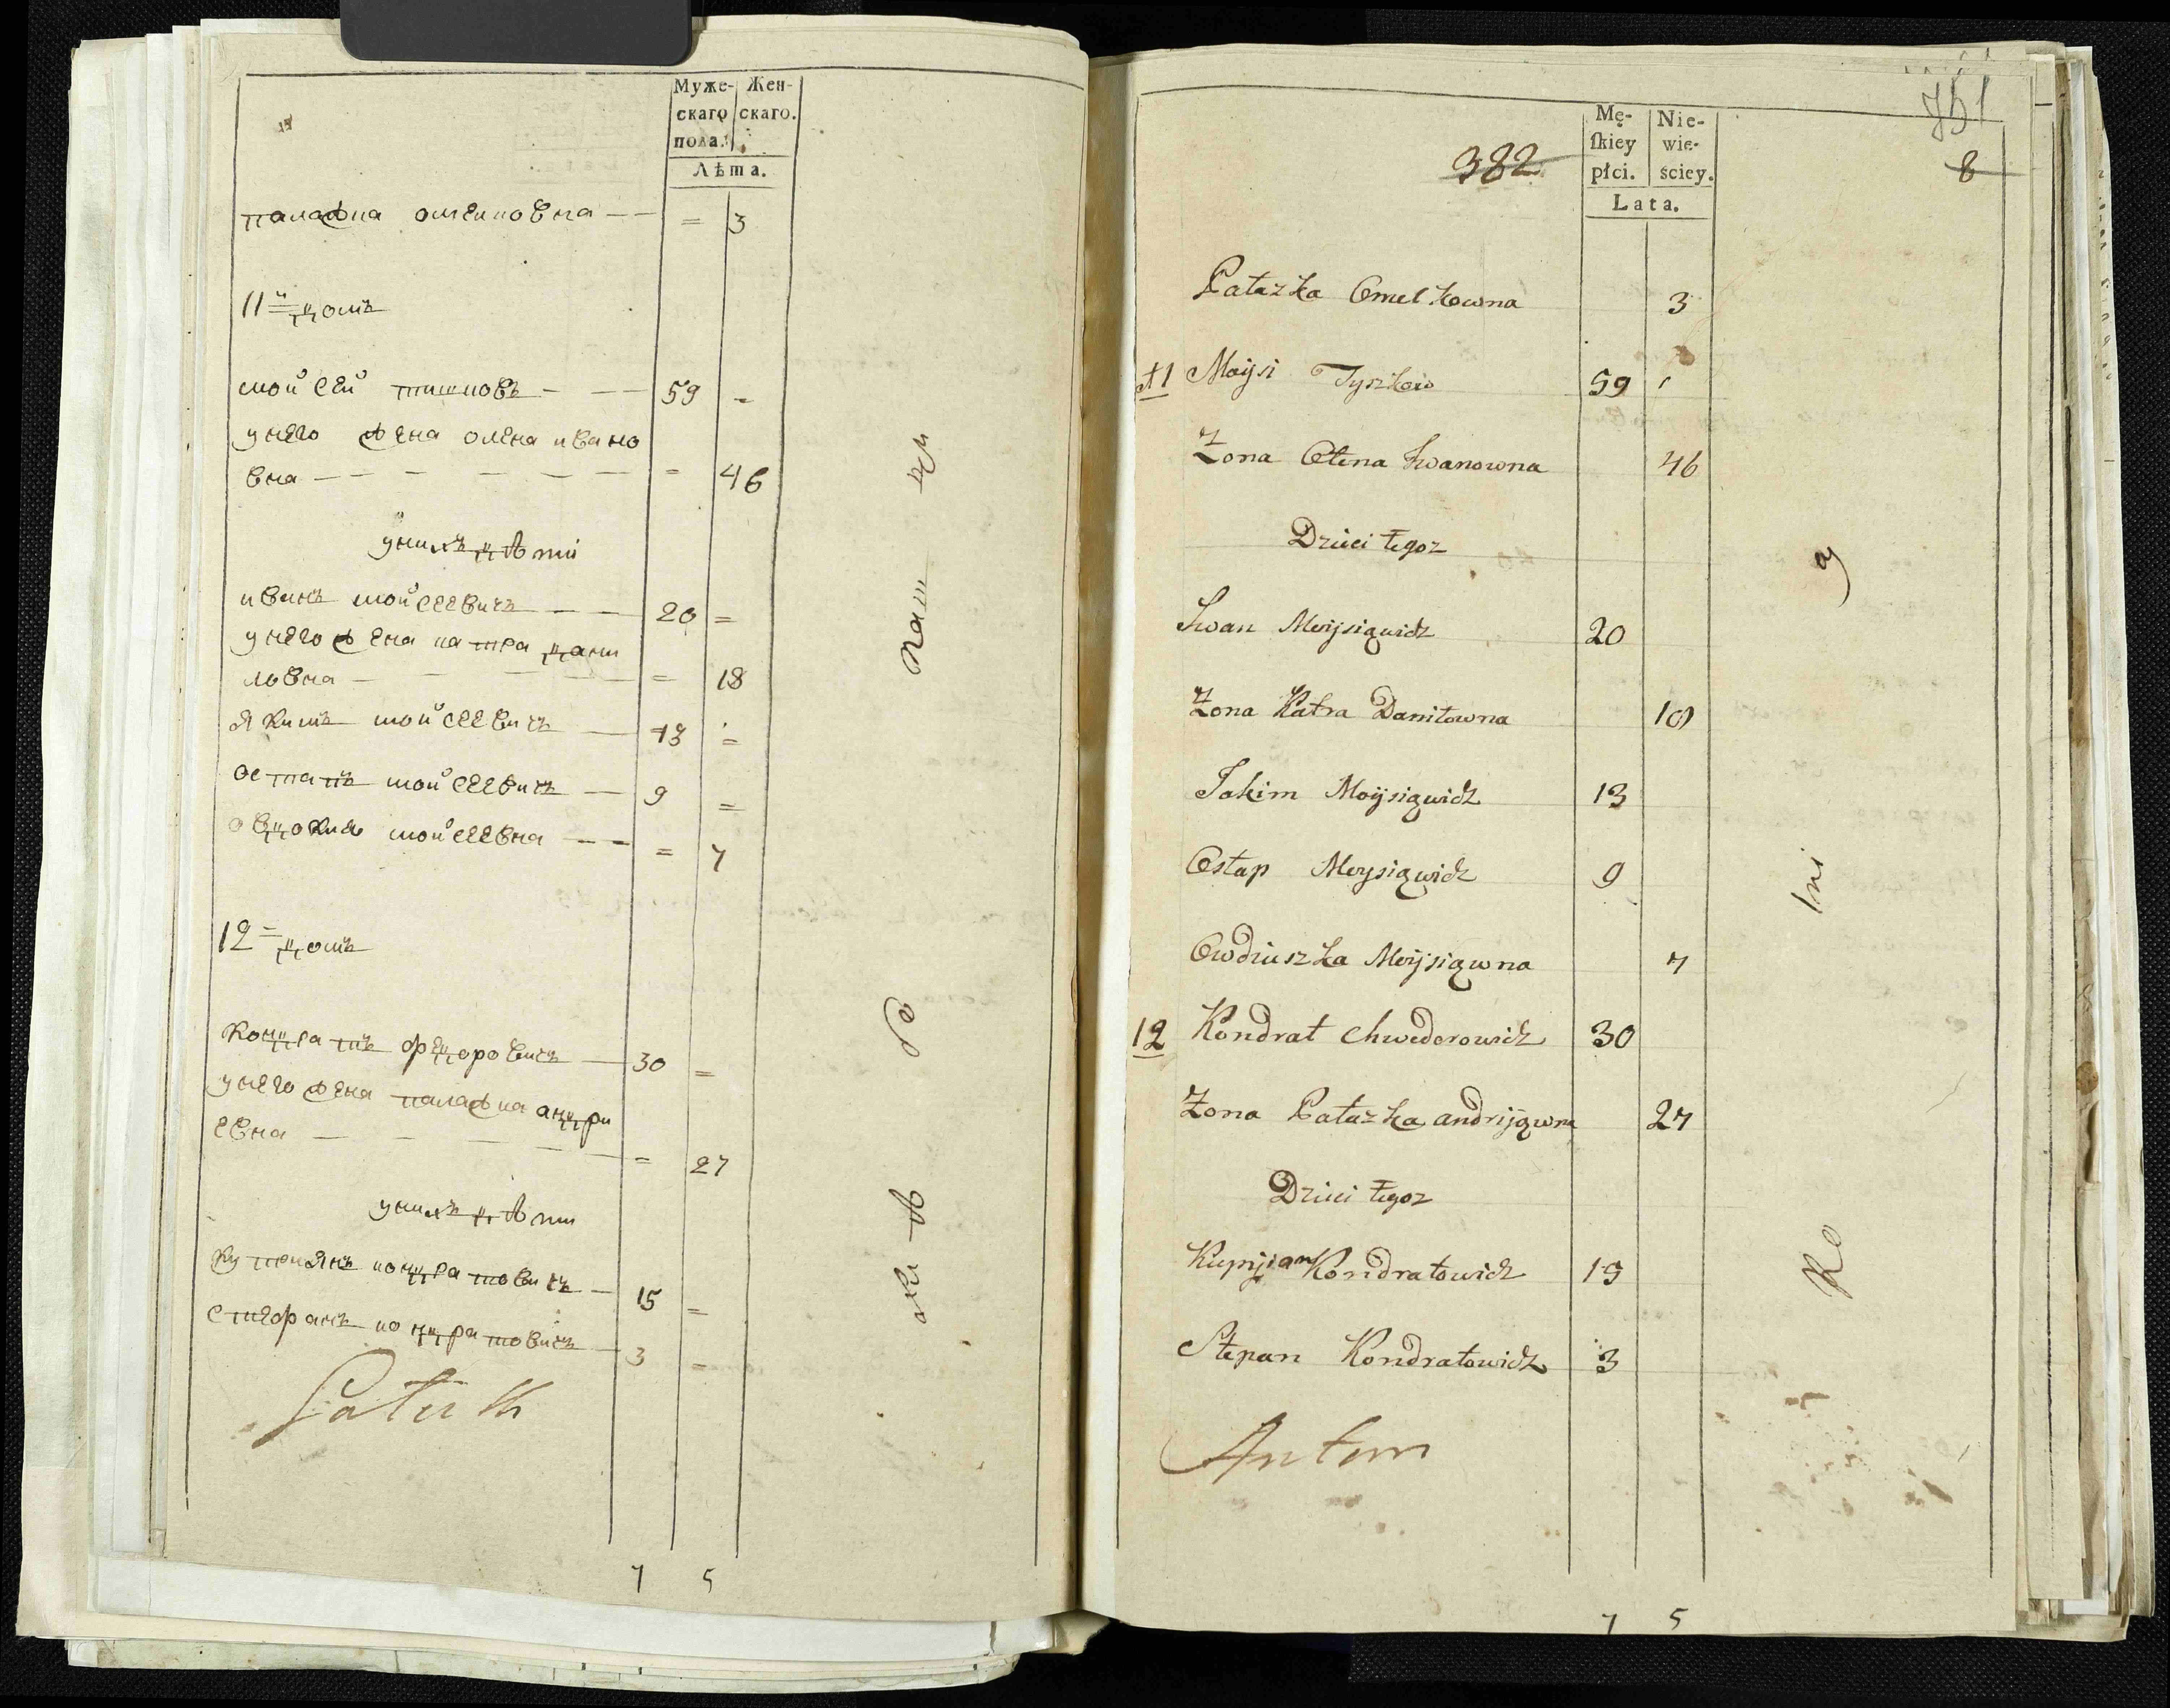 Муже-
скаго
пола.
Жен-
скаго.
Лѣта.
палажка омелковна — — = 3
11й домъ
мойсей тишковъ — — 59 =
унего жена олена ивано
вна — — — — — = 46
унихъ дѣти
иванъ мойсеевичъ — — 20 =
унего жена катра дани
ловна — — — — = 18
якимъ мойсеевичъ — 13 =
остапъ мойсеевичъ — 9 =
овдокия мойсеевна — — = 7
12= домъ
кондратъ федоровичъ — 30 =
унего жена палажка андри
евна — — — — = 27
унихъ дѣти
куприянъ кондратовичъ — 15 =
стефанъ кондратовичъ — 3 =
7 5
351
382
8
Mę-
skiey
płci.
Nie-
wie-
ściey.
Lata.
Pałazka Omelkowna 3
11 Moysi Tyszkow 59
Zona Ołena Iwanowna 46
Dzieci tegoz
Iwan Moysiąwicz 20
Zona Katra Daniłowna 18
Jakim Moysiąwicz 13
Ostap Moysiąwicz 9
Owdiuszka Moysiąwna 7
12 Kondrat Chwedorowicz 30
Zona Pałazka andrijąwna 27
Dzieci tegoz
Kupryian Kondratowicz 15
Stepan Kondratowicz 3
Antoni
7 5